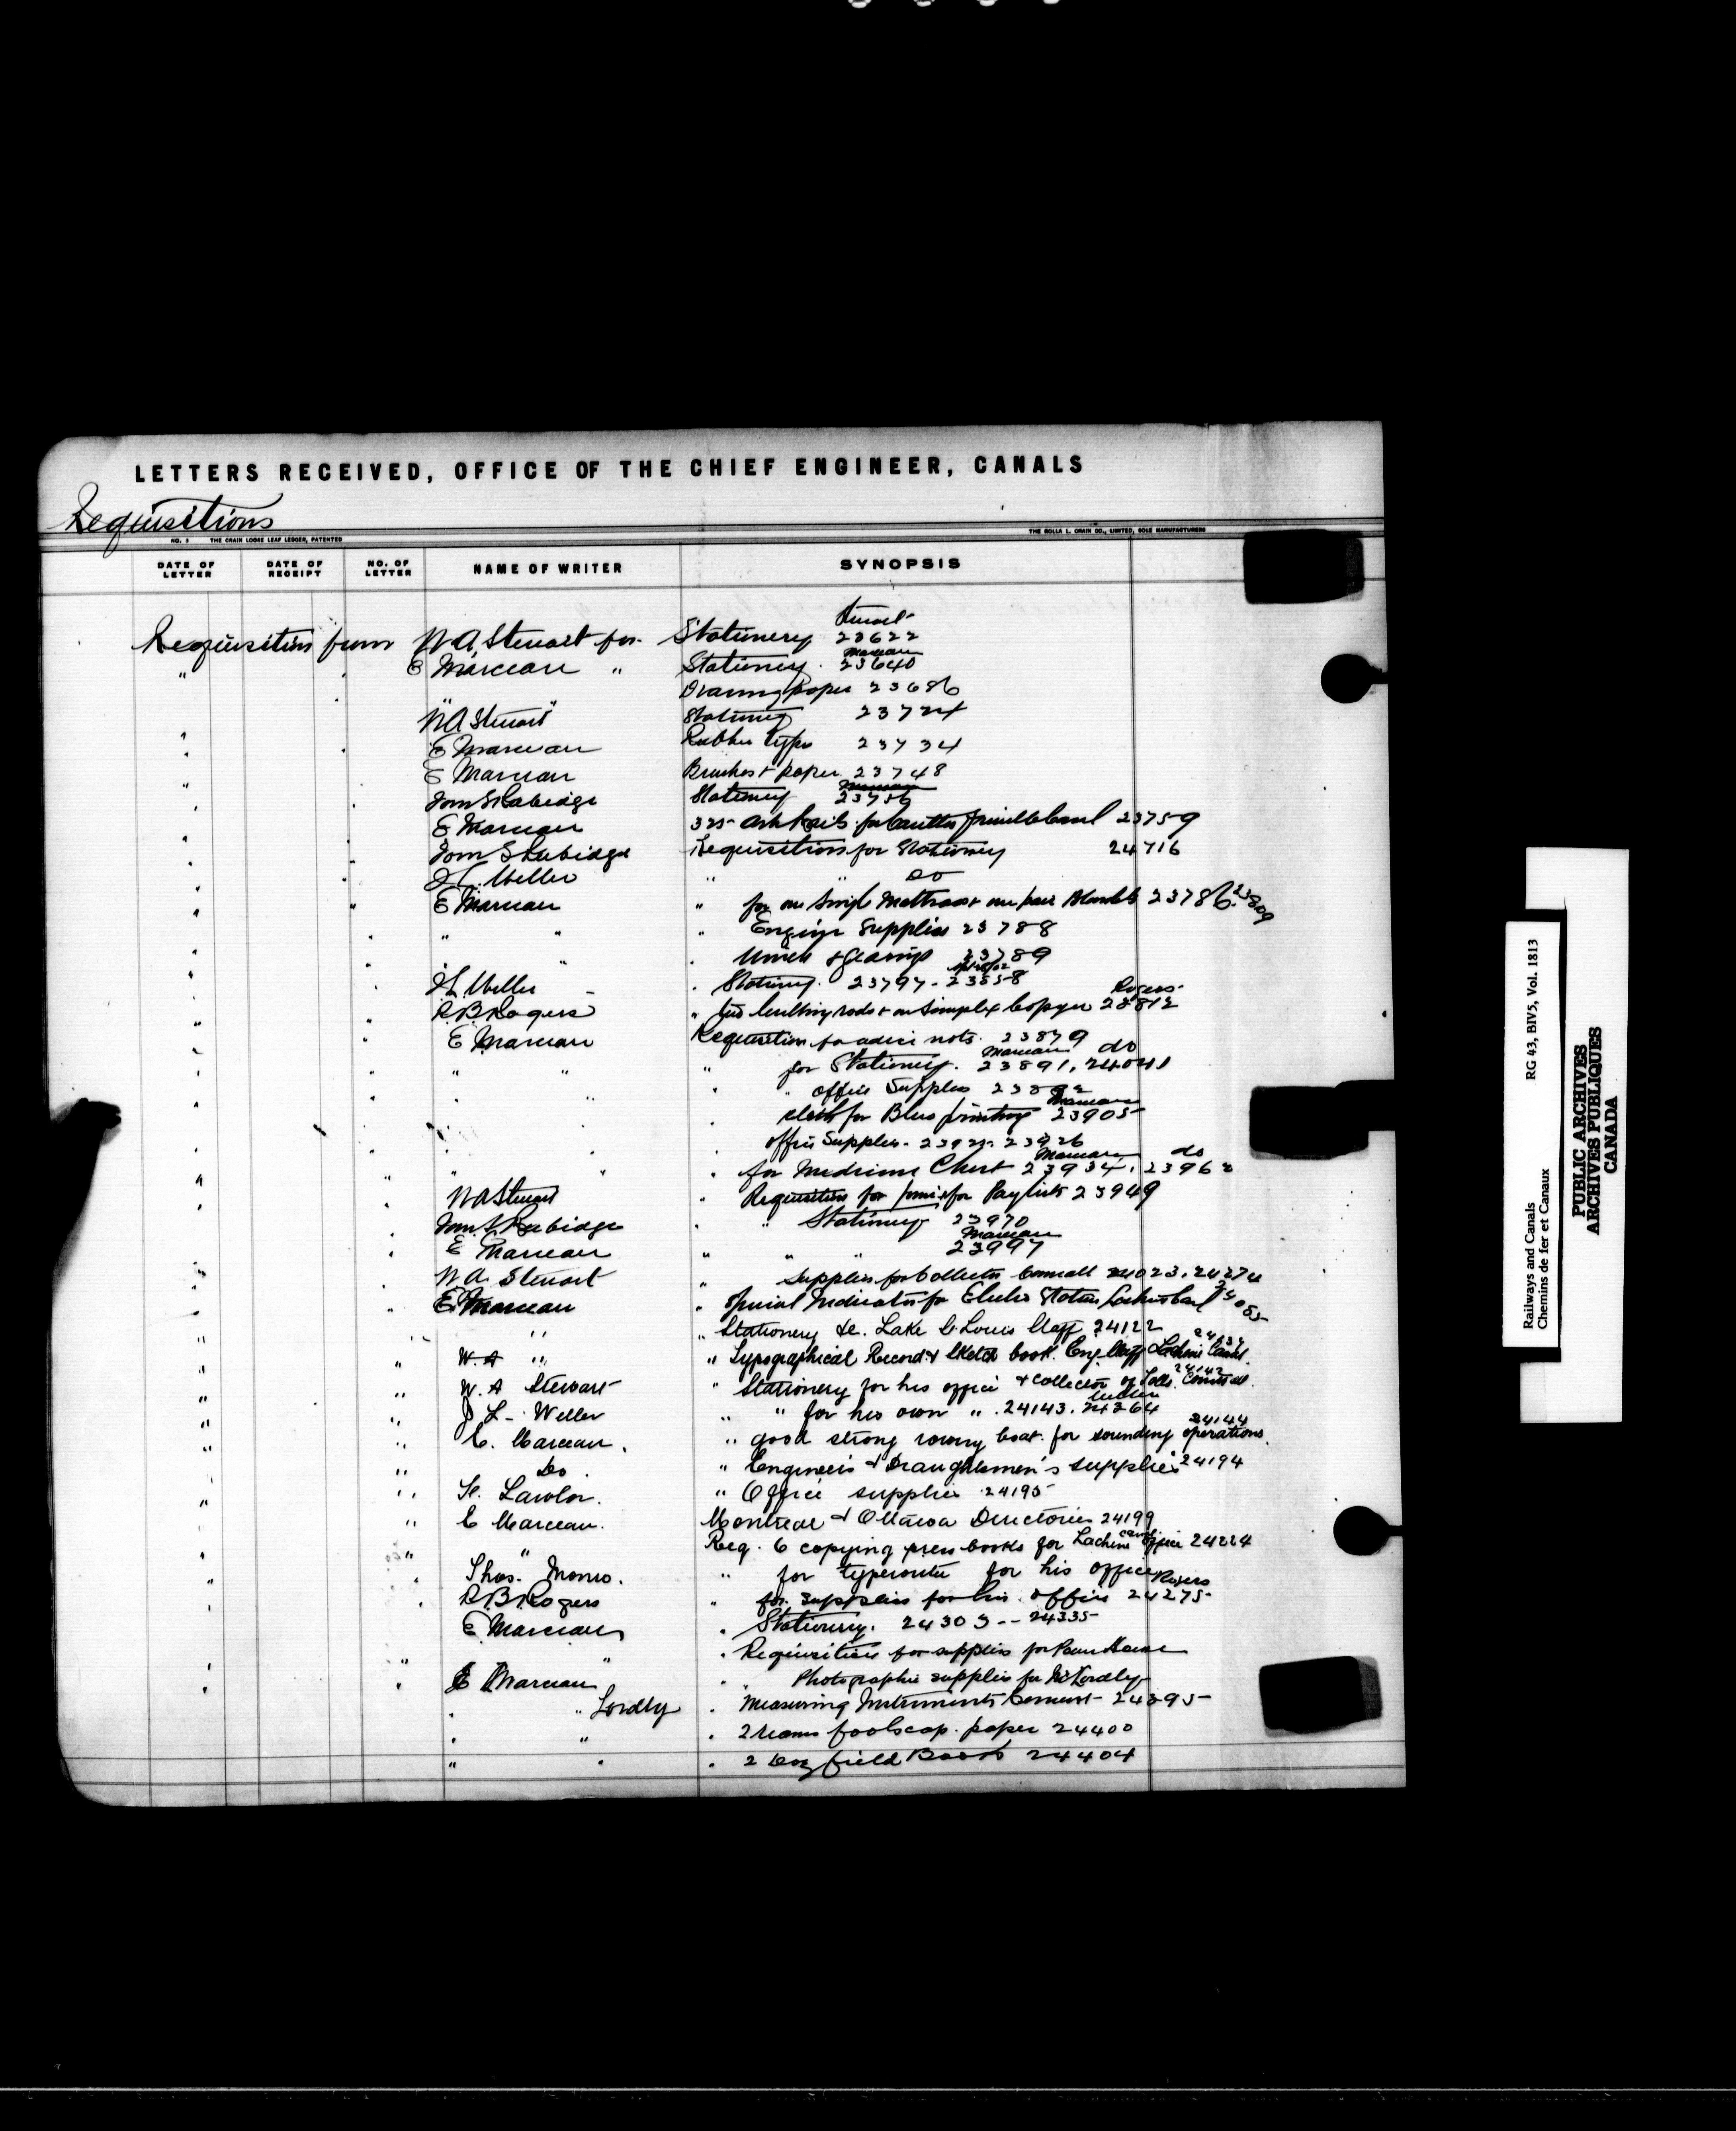 LETTERS RECEIVED, OFFICE OF THE CHIEF ENGINEER, CANALS
Requisitions
NO. 2 THE CRAIN LOOSE LEAF LEDGER, PATENTED THE ROLLA L. CRAIN CO., LIMITED, SOLE MANUFACTURERS
DATE OF LETTER DATE OF RECEIPT NO. OF LETTER NAME OF WRITER SYNOPSIS
Stewart
Requisition from W A Stewart for Stationery 23622
Marceau
" E Marceau " Stationery 23640
Drawing paper 23686
W A Stewart Stationery 23724
E Marceau Rubber type 23734
E Marceau Brushes & paper 23748
Marceau
Tom S Rubidge Stationery 23756
E Marceau 325 ash 23759
Tom S Rubidge Requisition for Stationery 24716
J L Weller " " Do
E Marceau " for one single Mattress & one pair Blankets 23786. 23809
" " " Engine Supplies 23788
" " 23789
J L Weller " Stationery. 23797 - 23858
Rogers
R B Rogers " two levelling rods & on Simplex Copyer 23812
E Marceau Requisition for advice notes. 23879
Marceau do
" " " for Stationery. 23891, 24041
" office Supplies 23892
Marceau
" cloth for Blue printing 23905
office Supplies - 23925. 23926
Marceau do
" " " for Medicine Chest 23934. 23962
W A Stewart " Requisition for forms for Paylists 23949
Tom S Rubidge " " Stationery 23970
Marceau
E Marceau " " " 23997
W A. Stewart " Supplies for Collector Cornwall 24023. 24274
E. Marceau " Special Indicator for Electric Station
" Stationery &c. Lake St Louis Staff 24122
24137
W. A " " Typographical Record & Sketch book. Eng. Staff Lachine Canal.
24142
W. A Stewart " Stationery for his office & collector of Tolls. Cornwall.
Weller
J L - Weller " " for his own " . 24143. 24264
24144
E. Marceau. " good strong rowing boat. for sounding operations.
Do " Engineer's & Draughtsmen's supplies 24194
Lawlor. " Office supplies 24195
E Marceau. Montreal & Ottawa Directories 24199
" Req. 6 copying press books for Lachine canal office 24224
Thos. Monro. " for typewriter for his office
Rogers
R. B. Rogers " for supplies for his office 24275
E Marceau " Stationery. 24303 -- 24335
" " Requisition for supplies for Power House
E Marceau " Photographic supplies for Mr Lordly
" " Lordly " Measuring Instruments Cement - 24395
" " " 2 reams foolscap. paper 24400
" " " 2 doz field Books 24404
Railways and Canals RG 43, BIV5, Vol. 1813
Chemins de fer et Canaux
PUBLIC ARCHIVES
ARCHIVES PUBLIQUES
CANADA